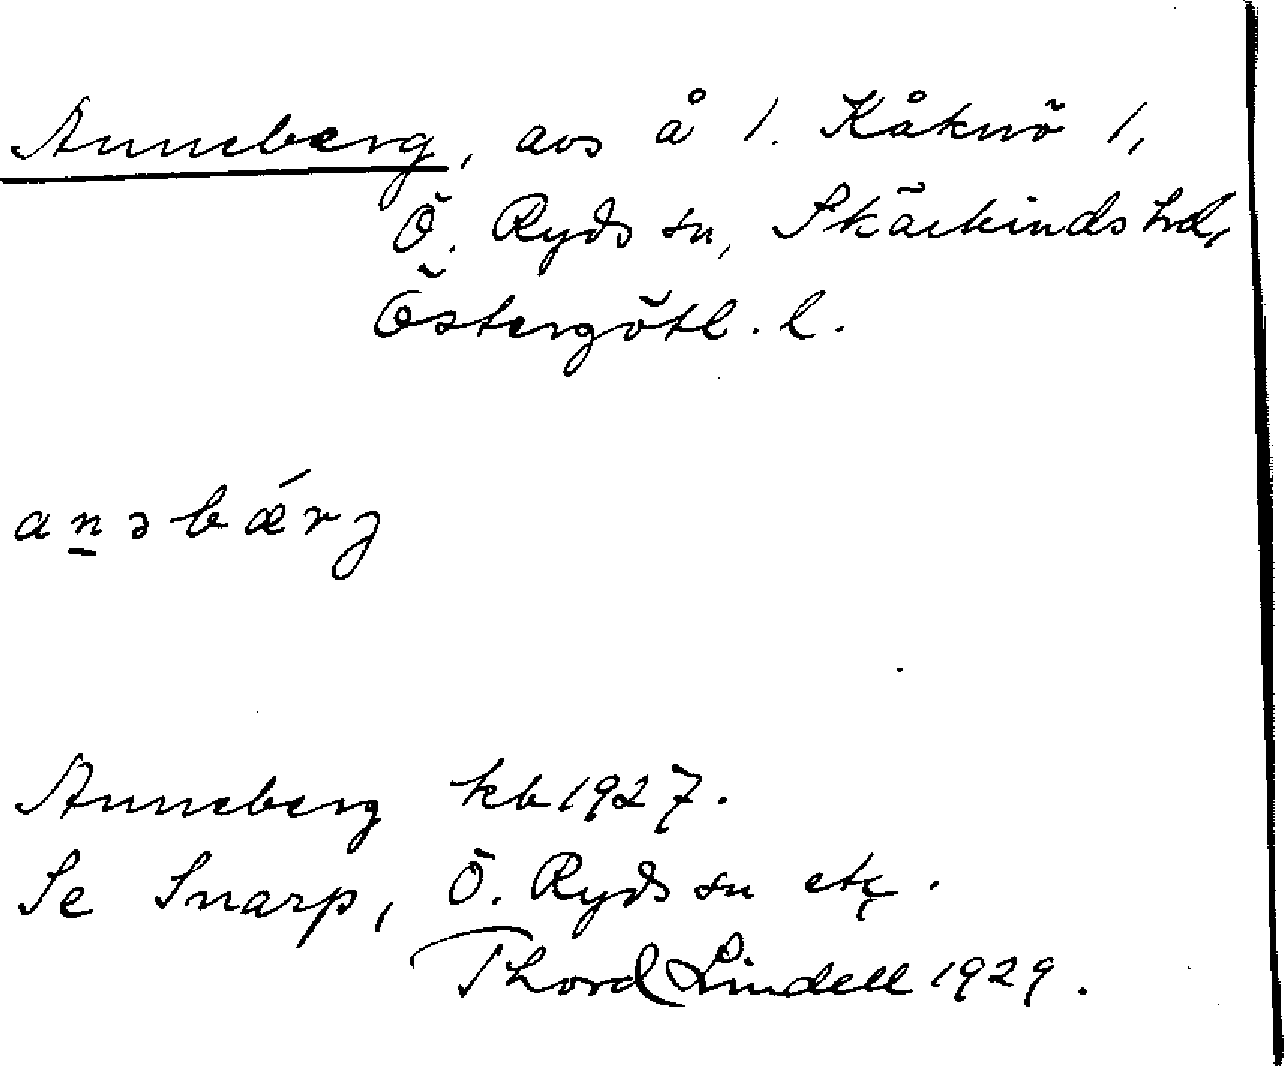 Anneberg, avs å 1. Kåknö 1,
Ö. Ryds sn, Skärkinds hd,
Östergötl. l.
an̲əbǽrj
Anneberg kb 1927.
Se Snarp, Ö. Ryds sn etc.
Thord Lindell 1929.